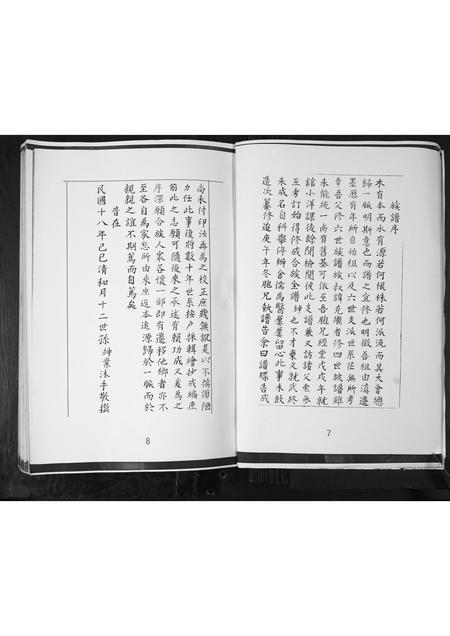 族譜序
木有本而水有源若何根株若何派流而其大會總
歸一脈明斯意也而譜之宜修也明徵各祖由滇遷
墨歷有年所自始祖以及六世支派世系茫無所考
幸吾父修六世族譜族叔諱克繼者修四世族譜雖
未能統一尚有舊基可依至吾胞兄經堂戊戌年就
館小洋課後餘閒檢閱彼此支譜兼又訪諸父老參
互考訂始得修成合族全譜紳也不才棄文就武終
未成名自科舉停辦舍儒為醫屢屢留心此事未敢
造次纂修迨庚午年冬胞兄執譜告余曰譜牒告成
7
尚未付印汝再為之校正庶幾無訛是以不揣譾陋
力任此事復將數十年世系按户採輯繪抄成編庶
前此之志願可隨後來之承述有賴功成又羞為之
序深願合族人眾各懷一部即有遷移他鄉者亦不
至各自為家忘所由來庶返本追源歸於一脈而於
親親之誼不期篤而自篤矣
昔在
民國十八年己巳清和月十二世孫紳業沐手敬撰
8